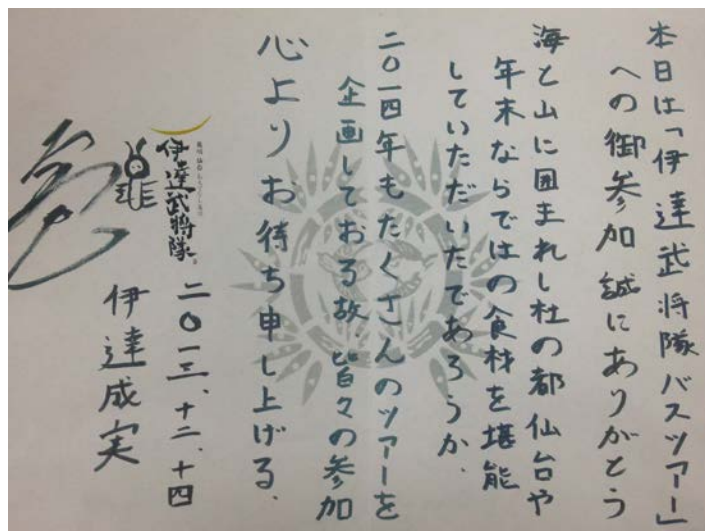 本日は「伊達武将隊バスツアー」
への御参加誠にありがとう
海と山に囲まれし杜の都仙台や
年末ならではの食材を堪能
していただいたであろうか、
二〇一四年もたくさんのツアーを
企画しておる故、皆々の参加
心よりお待ち申し上げる、
伊達武将隊
二〇一三、十二、十四
伊達成実